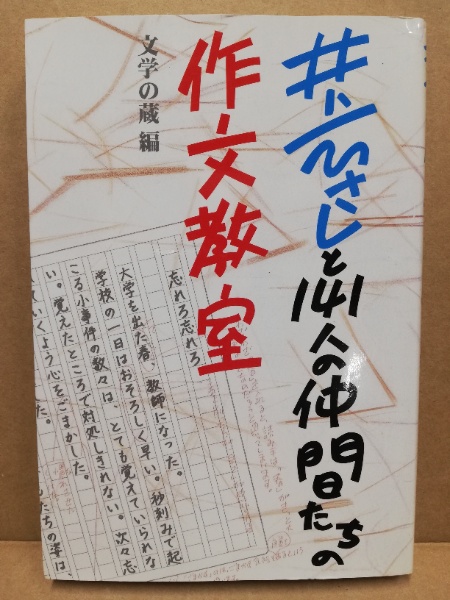 井上ひさしと141人の仲間たちの
作文教室
文学の蔵 編
忘れろ忘れろ
大学を出た春、教師になった。
学校の一日はおそろしく早い。秒刻みで起
こる小事件の数々は、とても覚えていられな
い。覚えたところで対処しきれない。次々忘
れていくよう心をごまかした。